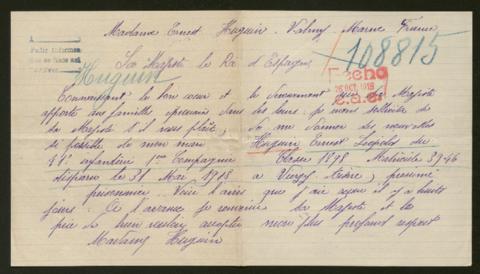 Madame Ernest Huguin. Valmy. Marne France
108815
Pedir informes
Huguin
Sa Majesté le Roi d'Espagne
Fecha
26 OCT. 1918
Connaissant le bon cœur et le dévouement que Sa Majesté
apporte aux familles éprouvées dans les leurs. Je viens solliciter de
Sa Majesté s'il vous plaît, de me donner des nouvelles
de mon mari Huguin Ernest Léopold du
infanterie 1ère Compagnie Classe 1898 Matricule
disparu le 31 Mai 1918 a Vierzy Aisne, présumé
prisonnier. Voici l'avis que j'ai reçu il y a huit
jours. Je l'avance je remercie Sa Majesté et la
prie de bien vouloir accepter mon plus profond respect
Madame Huguin